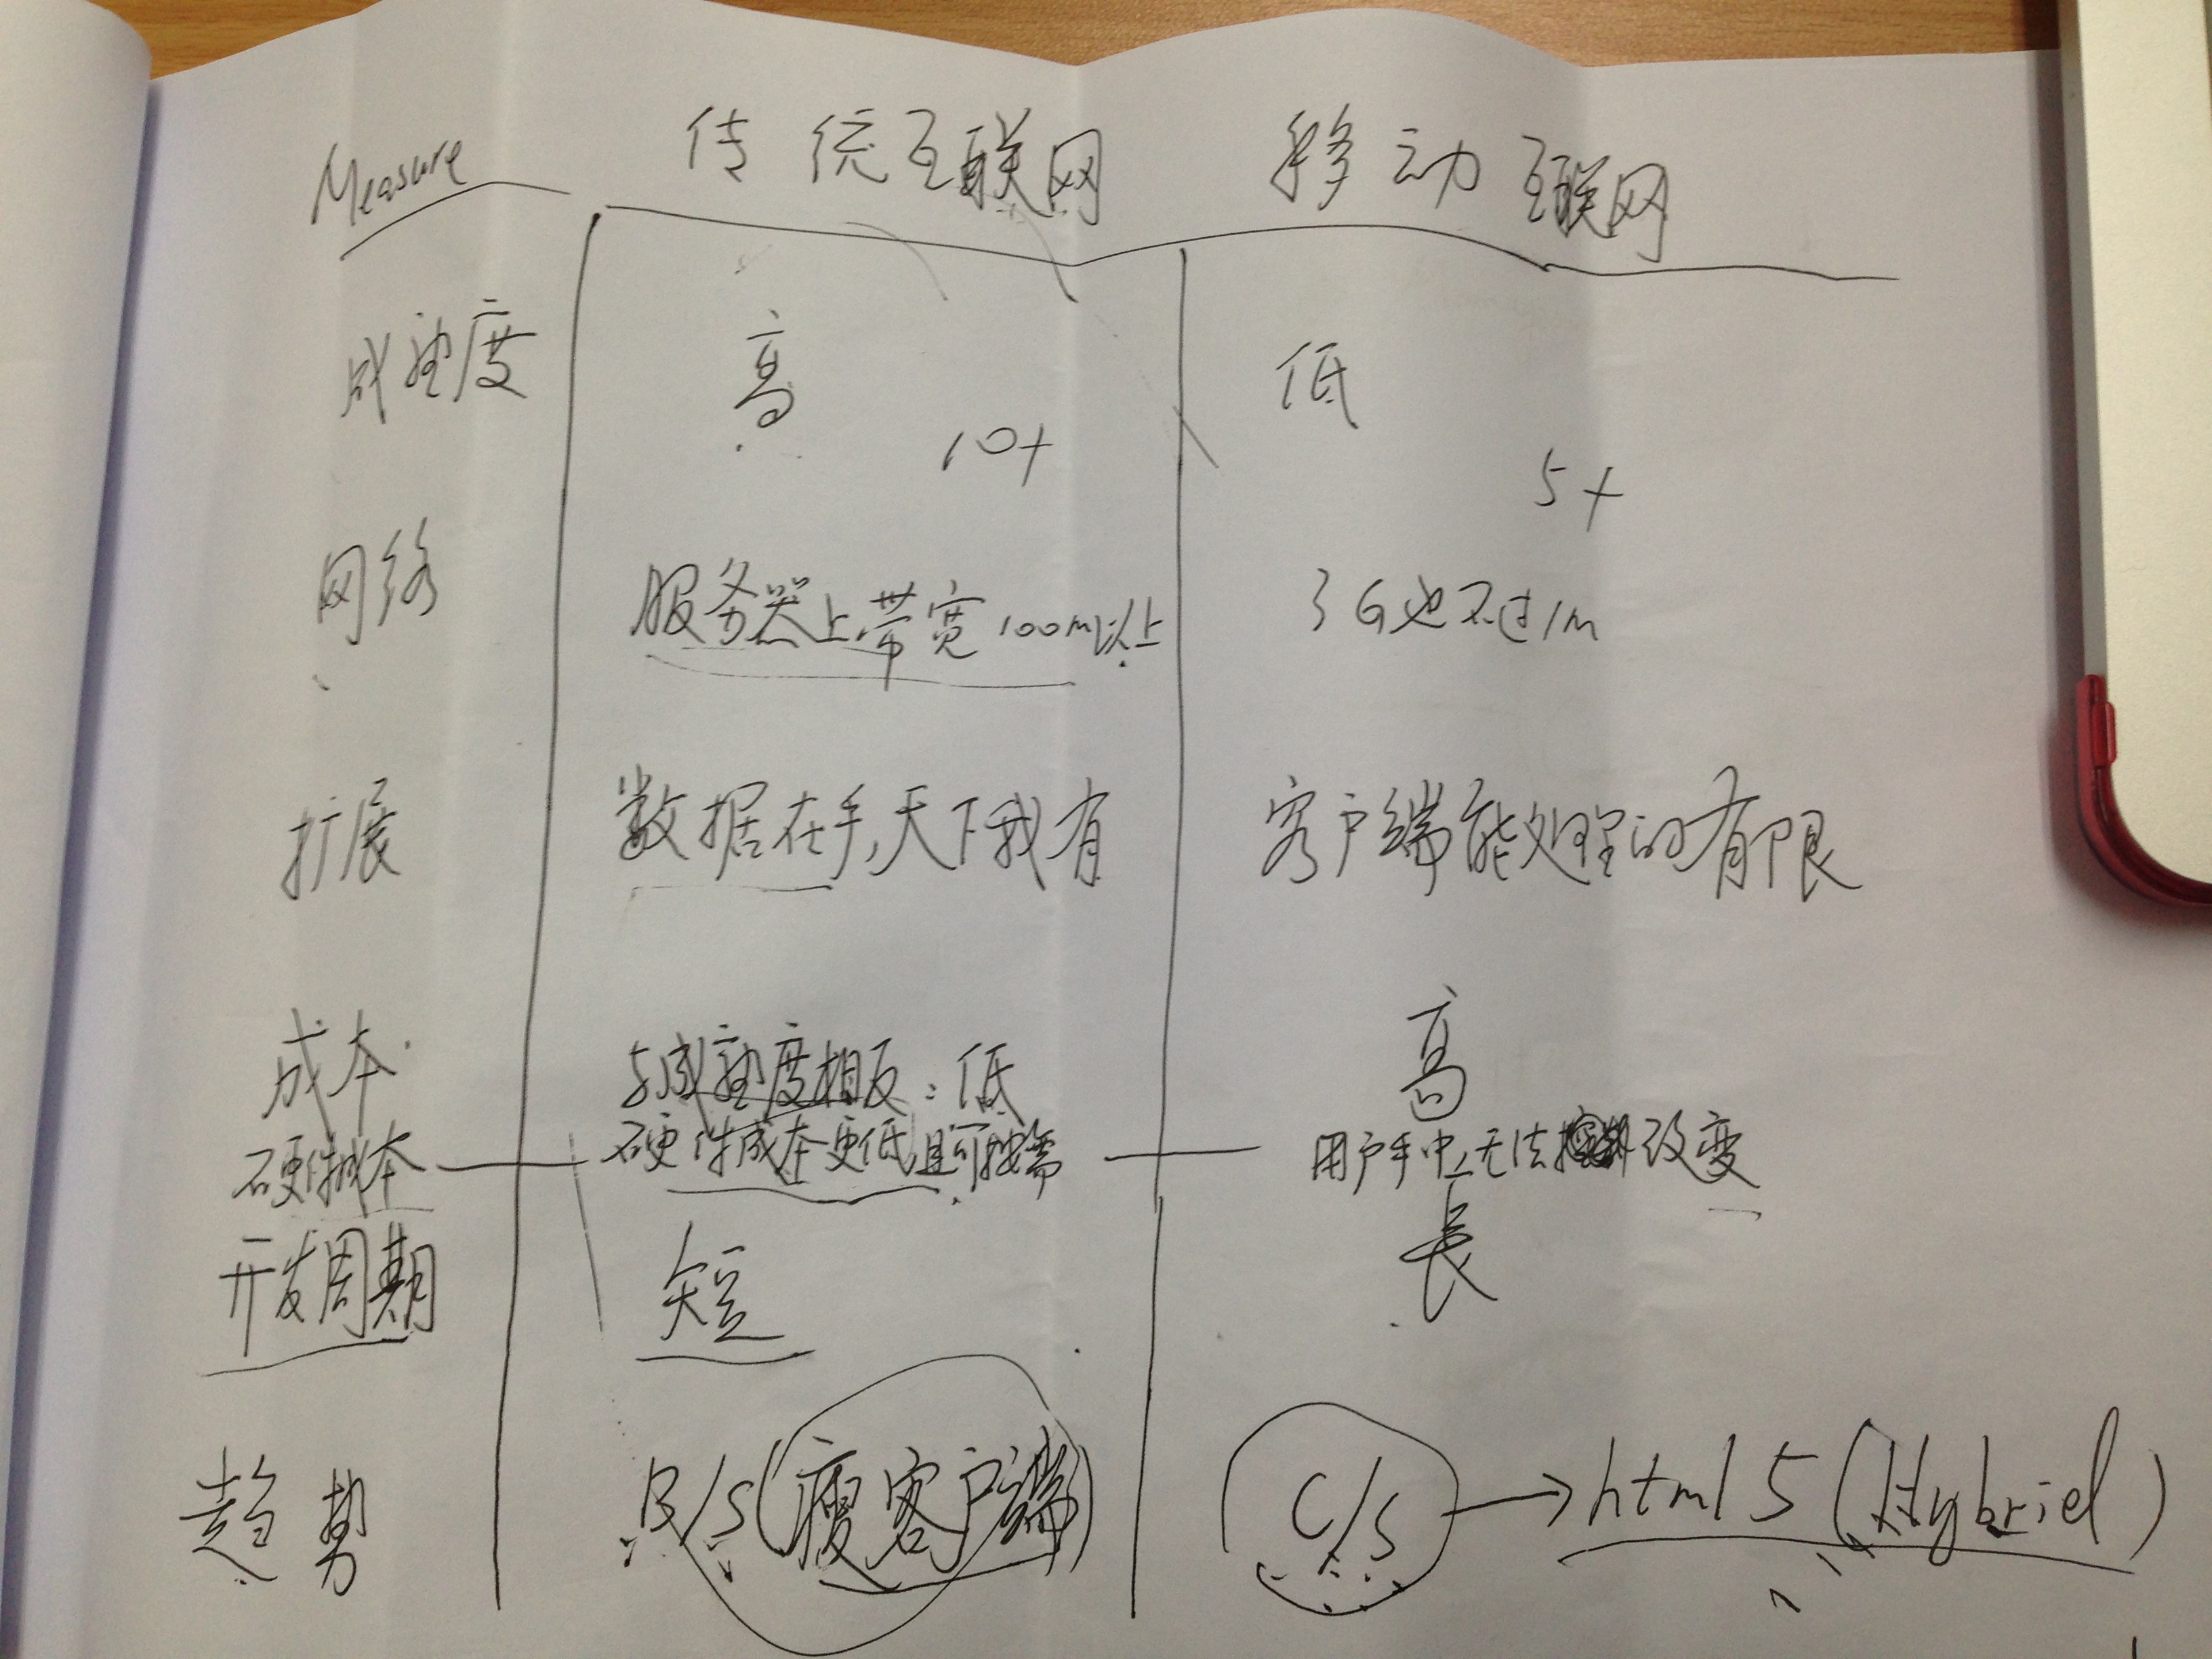 Measure 传统互联网 移动互联网
成熟度 高 10+ 低 5+
网络 服务器上带宽100m以上 3G也不过1m
扩展 数据在手,天下我有 客户端能处理的有限
成本 与成熟度相反:低 高
硬件成本 硬件成本更低且可按需 用户手中,无法改变
开发周期 短 長
趋势 B/S(瘦客户端) C/S → html5(Hybrid)